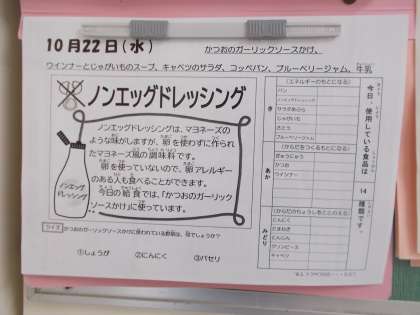 10月22日(水)
かつおのガーリックソースかけ、
ウインナーとじゃがいものスープ、キャベツのサラダ、コッペパン、ブルーベリージャム、牛乳
ノンエッグドレッシング
ノンエッグドレッシングは、マヨネーズの
ような味がしますが、卵を使わずに作られ
たマヨネーズ風の調味料です。
卵を使っていないので、卵アレルギー
のある人も食べることができます。
今日の給食では、「かつおのガーリック
ソースかけ」に使っています。
ノンエッグ
ドレッシング
クイズ
かつおのガーリックソースかけに使われている野菜は、何でしょうか?
①しょうが ②にんにく ③パセリ
今日、使用している食品は
14
種類です。
(エネルギーのもとになる)
き
パン
ノンエッグドレッシング
サラダあぶら
じゃがいも
さとう
ブルーベリージャム
(からだをつくるもとになる)
あか
ぎゅうにゅう
かつお
ウインナー
(からだのちょうしをととのえる)
みどり
にんにく
たまねぎ
にんじん
グリンピース
キャベツ